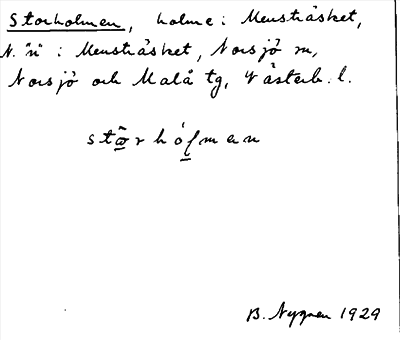 Storholmen, holme i Mensträsket,
N. "n" i Mensträsket, Norsjö sn,
Norsjö och Malå tg, Västerb. l.
stårhólman
B. Nygren 1929